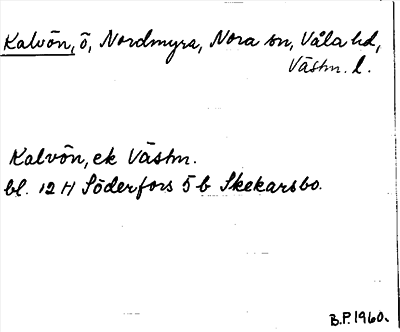 Kalvön, ö, Nordmyra, Nora sn, Våla hd,
Västm. l.
Kalvön, ek Västm.
bl. 12 H Söderfors 5 b Skekarsbo.
B.P. 1960.